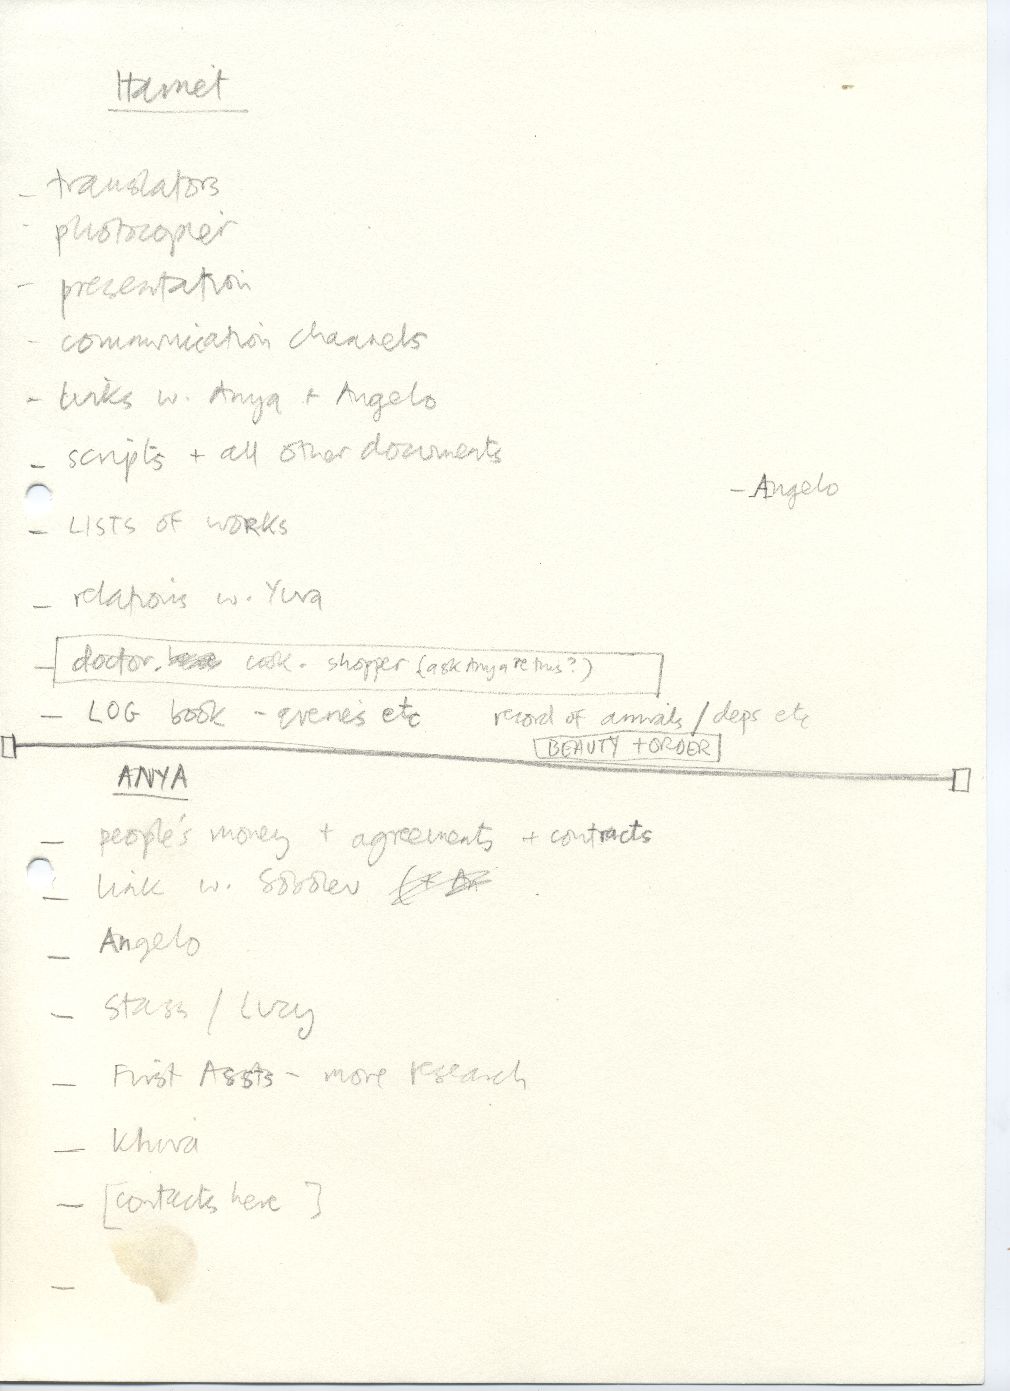 Harriet
- translators
- photocopier
- presentation
- communication channels
- links w. Anya + Angelo
- scripts + all other documents
- Angelo
- LISTS OF WORKS
- relations w. Yura
- doctor. cook. shopper (ask Anya re this?)
- LOG book - queries etc record of arrivals / deps etc
BEAUTY + ORDER
ANYA
- people's money + agreements + contracts
- link w. Sobolev
- Angelo
- Stass / Lucy
- First Assts - more research
- Khiva
- [contacts here]
-